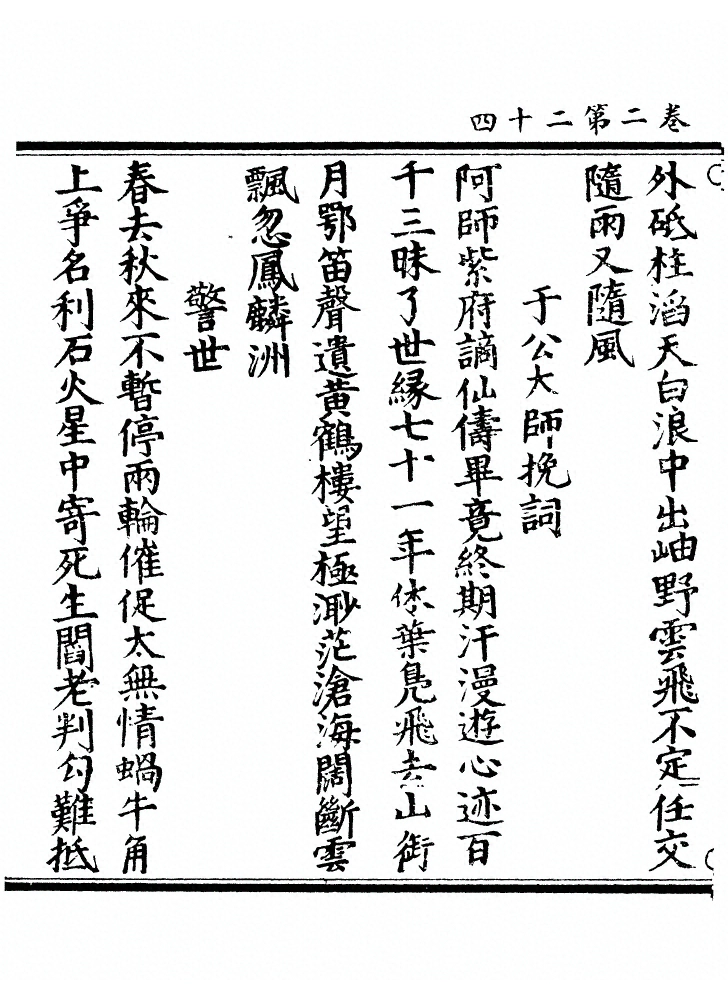 卷二第二十四
外砥柱滔天白浪中出岫野雲飛不定任交
隨雨又隨風
于公大師挽詞
阿師紫府謫仙儔畢竟終期汗漫遊心迹百
千三昧了世緣七十一年休葉鳧飛去山銜
月鄂笛聲遺黃鶴樓望極渺茫滄海闊斷雲
飄忽鳳麟洲
警世
春去秋來不暫停兩輪催促太無情蝸牛角
上爭名利石火星中寄死生閻老判勾難抵